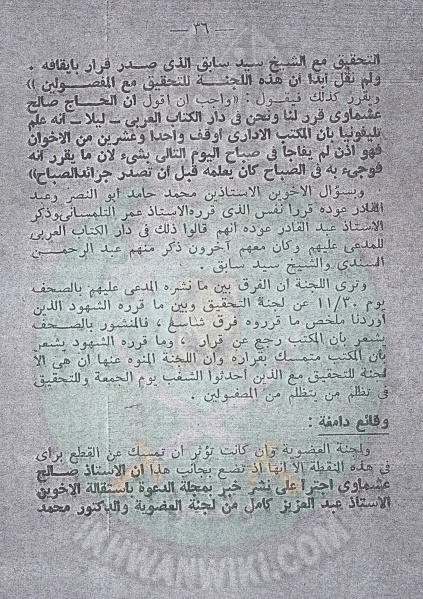 — ٣٦ —
التحقيق مع الشيخ سيد سابق الذى صدر قرار بايقافه .
ولم نقل أبدا أن هذه اللجنة للتحقيق مع المفصولين))
ويقرر كذلك فيقول : ((واجب ان اقول ان الحاج صالح
عشماوى قرر لنا ونحن فى دار الكتاب العربى - ليلا - أنه علم
تليفونيا بأن المكتب الادارى أوقف واحدا وعشرين من الاخوان
فهو اذن لم يفاجأ فى صباح اليوم التالى بشىء لأن ما يقرر أنه
فوجىء به فى الصباح كان يعلمه قبل أن تصدر جرائد الصباح))
وبسؤال الأخوين الاستاذين محمد حامد أبو النصر وعبد
القادر عوده قررا نفس الذى قرره الاستاذ عمر التلمسانى وذكر
الاستاذ عبد القادر عوده أنهم قالوا ذلك فى دار الكتاب العربى
للمدعى عليهم وكان معهم آخرون ذكر منهم عبد الرحمن
السندى والشيخ سيد سابق .
وترى اللجنة أن الفرق بين ما نشره المدعى عليهم بالصحف
يوم ١١/٣٠ عن لجنة التحقيق وبين ما قرره الشهود الذين
أوردنا ملخص ما قرروه فرق شاسع ، فالمنشور بالصحف
يشعر بأن المكتب رجع عن قرار ، وما قرره الشهود يشعر
بأن المكتب متمسك بقراره وان اللجنة المنوه عنها ان هى الا
لجنة للتحقيق مع الذين أحدثوا الشغب يوم الجمعة وللتحقيق
فى تظلم من يتظلم من المفصولين .
وقائع دامغة :
ولجنة العضوية وان كانت تؤثر أن تمسك عن القطع برأى
فى هذه النقطة الا أنها اذ تضع بجانب هذا أن الاستاذ صالح
عشماوى اجترأ على نشر خبر بمجلة الدعوة باستقالة الاخوين
الاستاذ عبد العزيز كامل من لجنة العضوية والدكتور محمد
IKHWANWIKI.COM